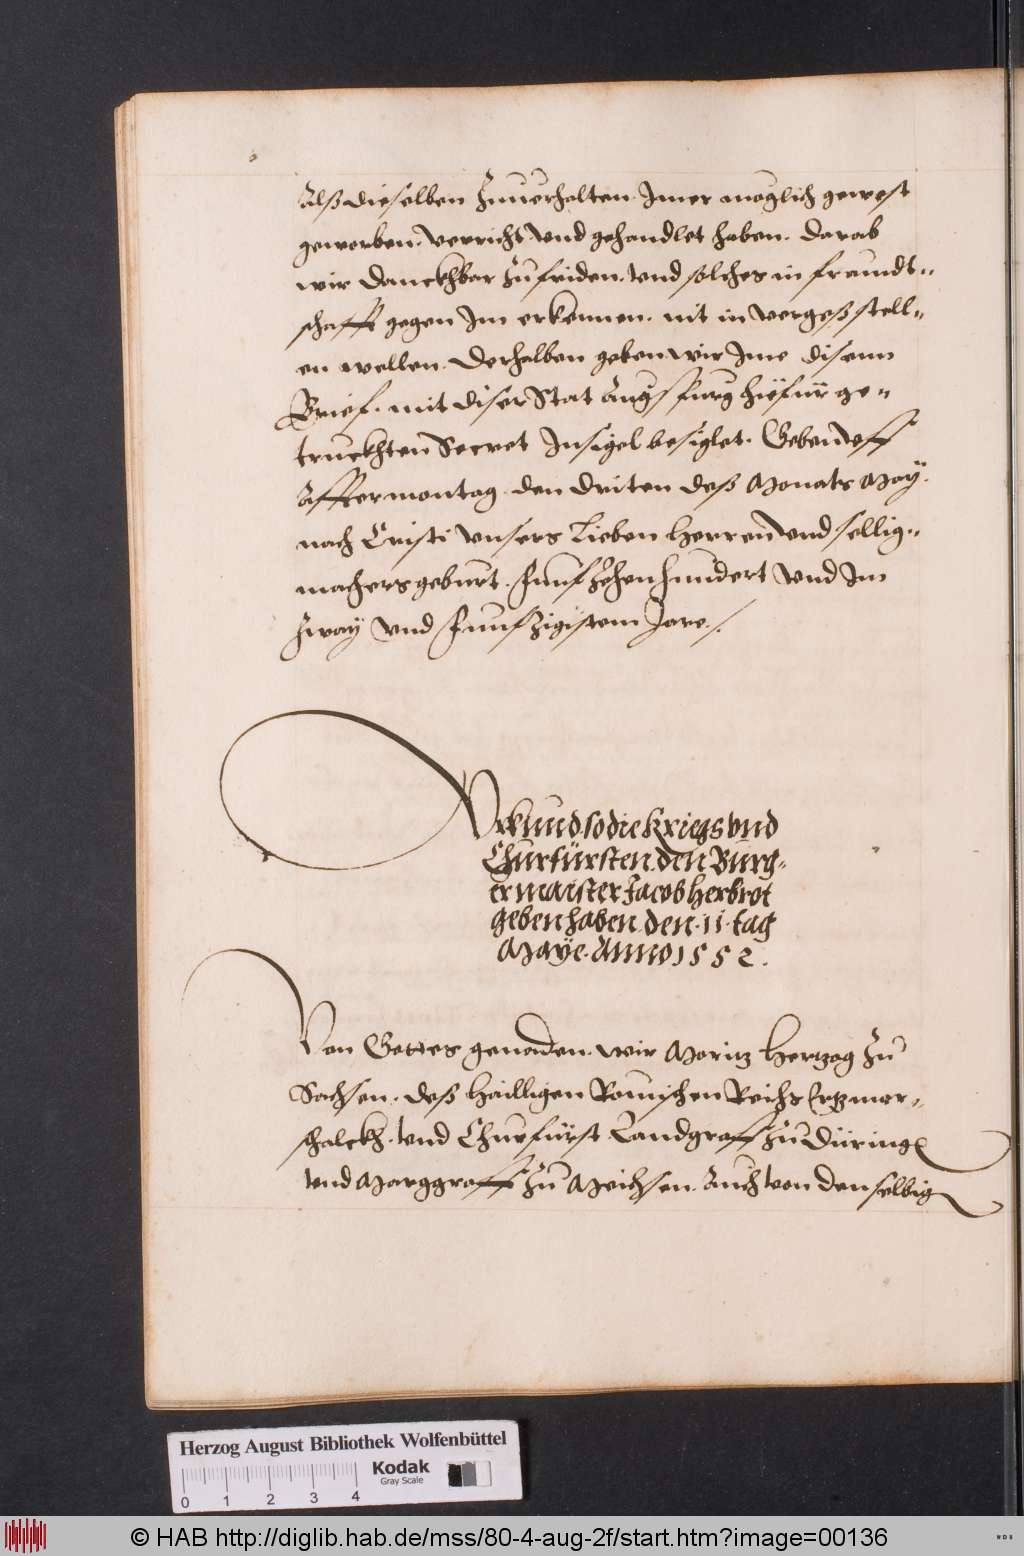 Alß dieselben Zuuerhalten Imer moglich gewest
geworben, verricht, vnd gehandlet haben. Darab
wir Danckhbar Zufriden, vnd solches in freundt-
schafft gegen Im erkennen, nit in vergeß stell-
en wellen. Derhalben geben wir Ime disenn
Brief, mit diser Stat Augspurg hiefur ge-
truckhten Secret Insigel besiglet. Geben vff
Afftermontag den Driten deß Monats May.
nach Cristi vnsers Lieben Herren vnd sellig-
machers geburt. Funfzehenhundert vnd Im
Zway vnd Funfzigistem Jare./.
Vrkund, so die Kriegs vnd
Churfürsten, den Burg-
ermaister Jacob Herbrot
geben haben den .11. tag
Maye. Anno 1552.
Von Gottes genaden. wir Moritz Hertzog Zu
Sachsen, deß Hailligen Romischen Reichs Ertzmar-
schalckh, vnd Churfürst Landgraff Zu Düringen
vnd Marggraff Zu Meichsen. Auch von denselbigen
Herzog August Bibliothek Wolfenbüttel
Kodak
Gray Scale
0 1 2 3 4
© HAB http://diglib.hab.de/mss/80-4-aug-2f/start.htm?image=00136